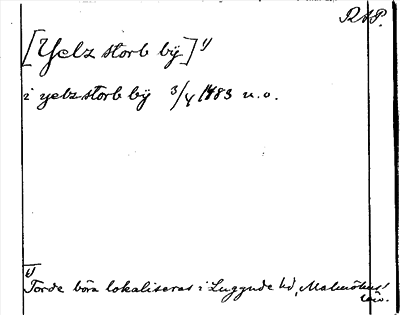 RAP.
[Yelz storb bÿ] 1)
i yelzstorb bÿ 3/4 1483 u.o.
1) Torde böra lokaliseras i Luggude hd, Malmöhus
län.